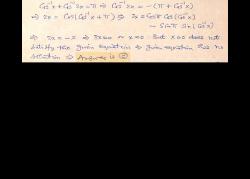 Cos⁻¹x + Cos⁻¹2x = π ⇒ Cos⁻¹2x = -(π + Cos⁻¹x)
⇒ 2x = Cos(Cos⁻¹x + π) ⇒ 2x = Cosπ Cos(Cos⁻¹x)
- Sinπ Sin(Cos⁻¹x)
⇒ 2x = -x ⇒ 3x=0 ⇒ x=0. But x=0 does not
satisfy the given equation ⇒ given equation has no
solution ⇒ Answer is